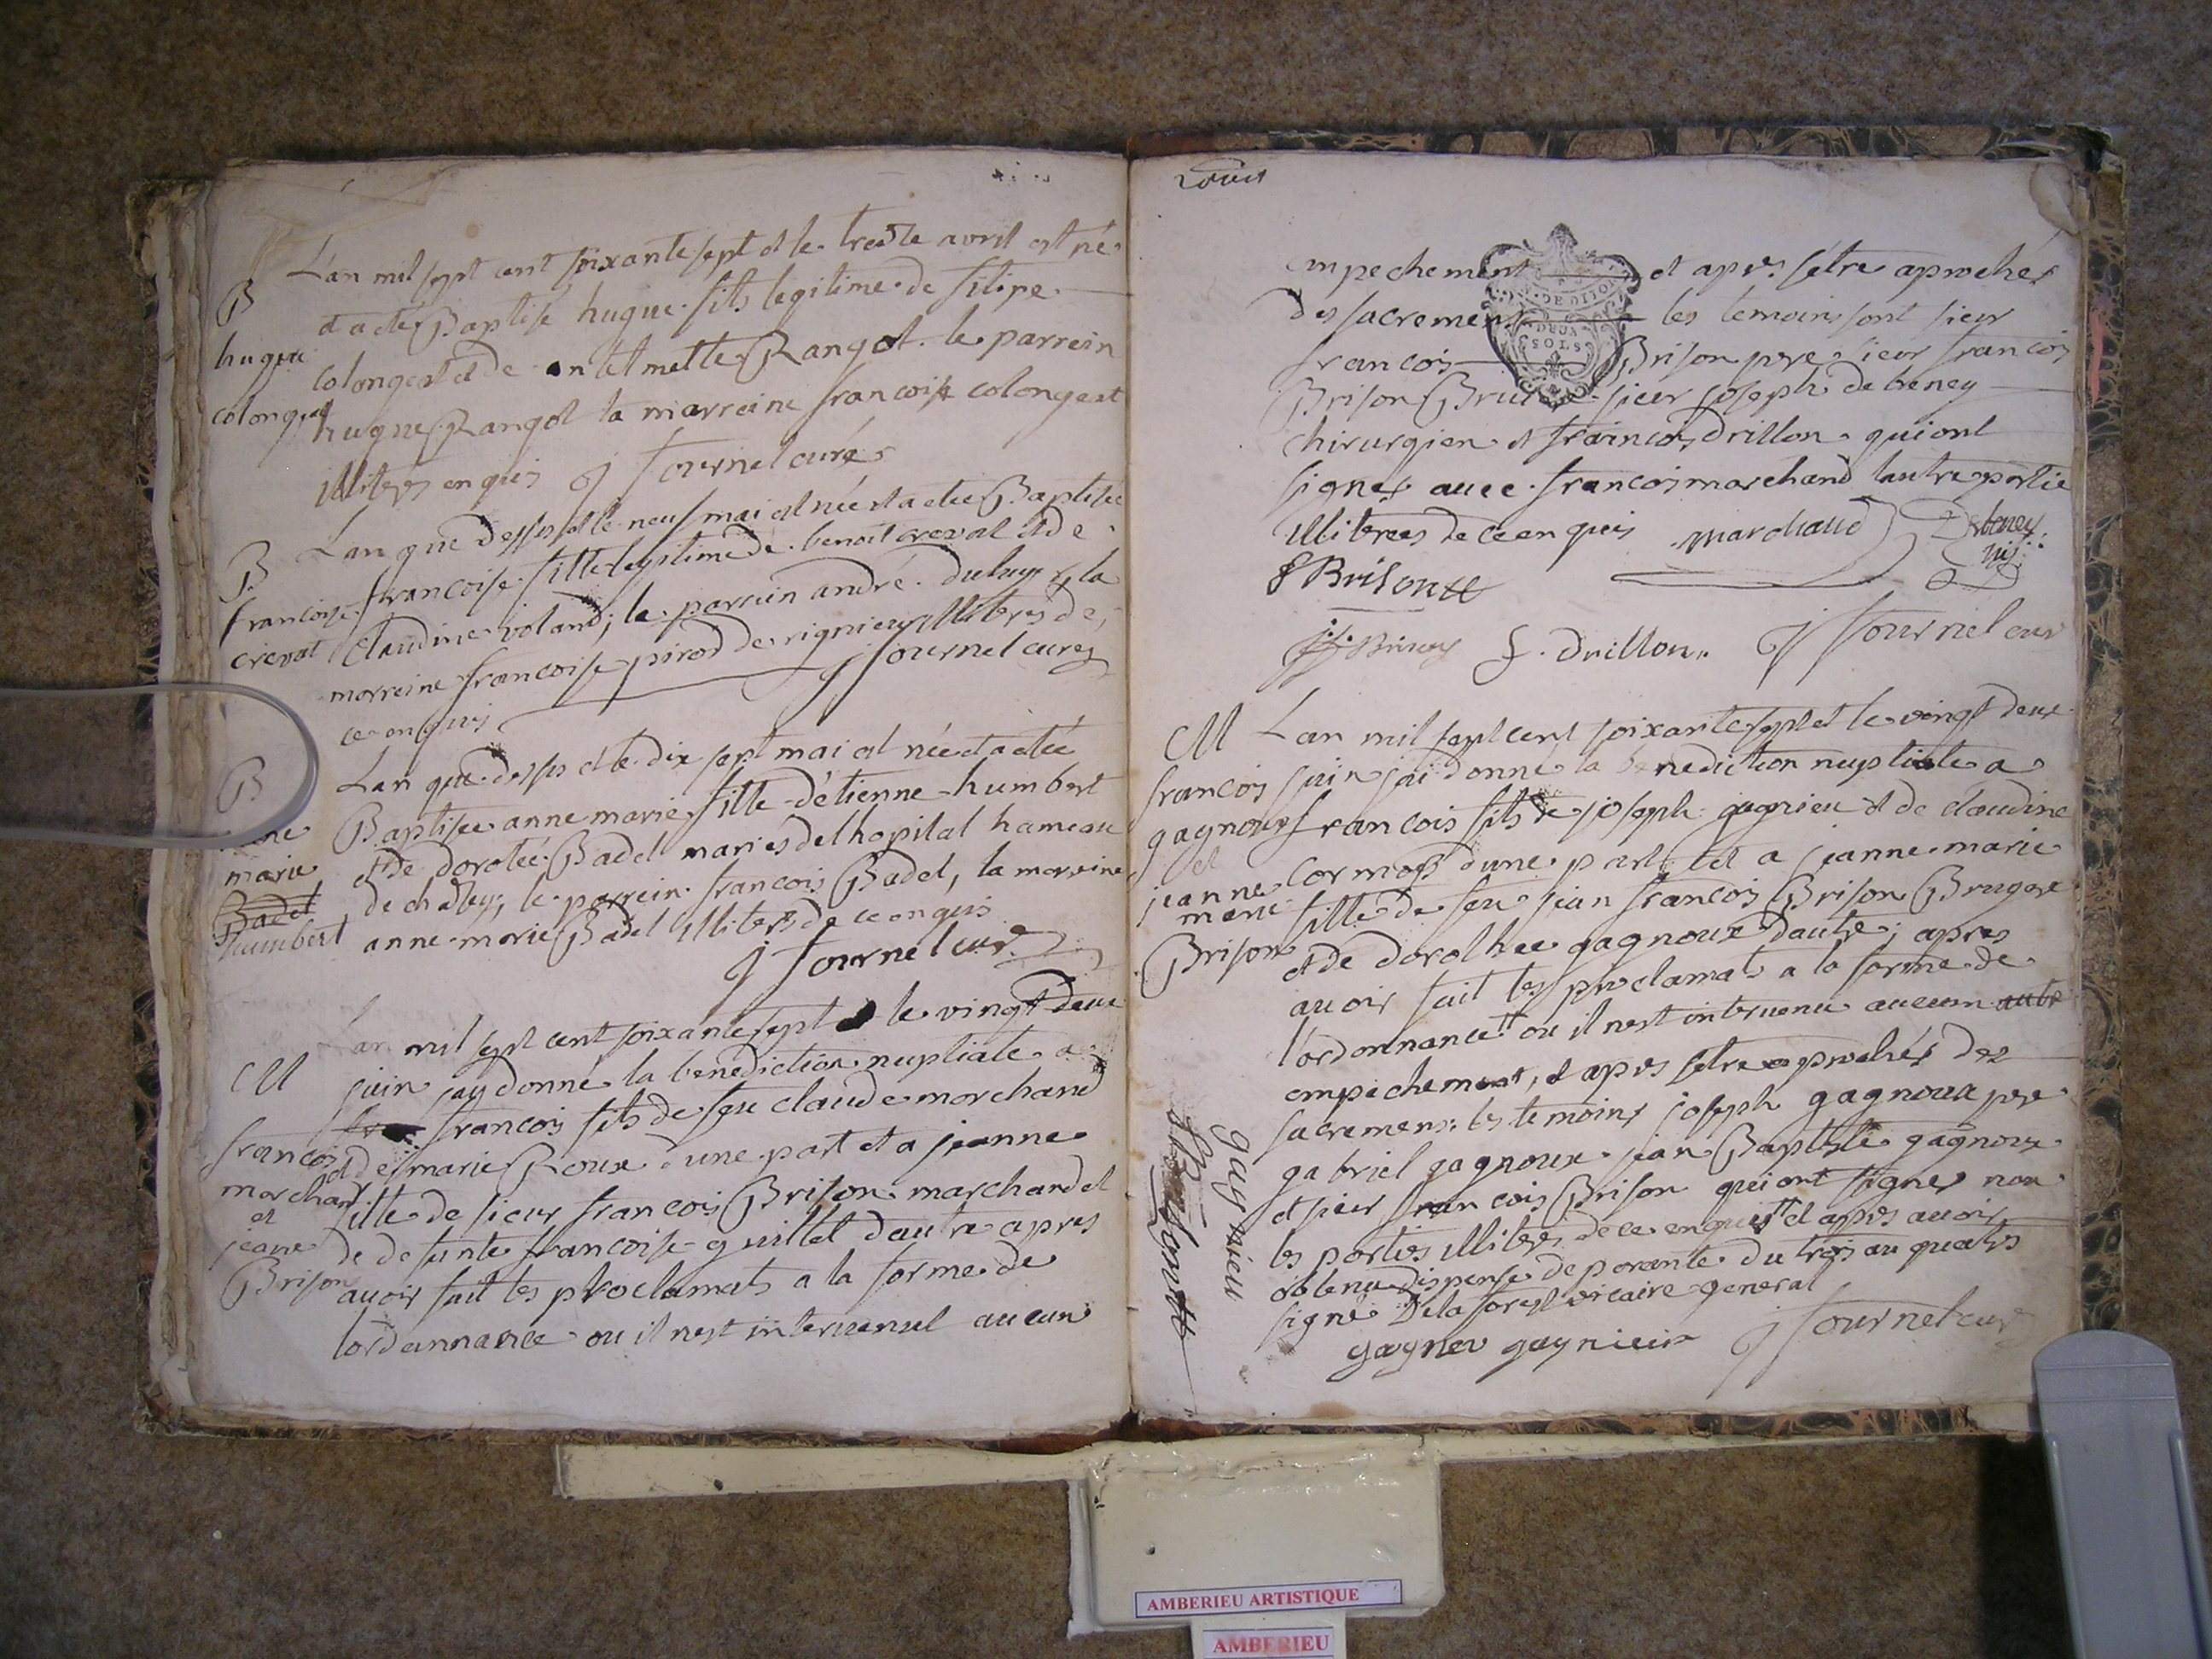 L'an mil sept cent soixante sept et le treize avril est né
B
et a été Baptisé hugue fils legitime de filipe
hugue
colongeat et de Rangot le parrein
colongeat
hugue Rangot la marreine francoise colongeat
illiteres enquis j fournel curé
Lan que dessus et le neuf mai est née et a etée Baptisée
B
francoise fille legitime de benoit creval et de
francoise
creval
claudine voland, le parrein andré la
marreine francoise pirod de rignieu illiteres de
ce enquis j fournel curé
Lan que dessus et le dix sept mai est née et a etée
B
Baptisée anne marie fille détienne humbert
marie
et de dorotée Badel mariés de lhopital hameau
Badel
de chaley, le parrein francois Badel, la marreine
humbert
anne marie Badel illiteres de ce enquis
j fournel curé
Lan mil sept cent soixante sept et le vingt deux
M
juin jay donné la benediction nuptiale a
francois fils de feu claude marchand
francois
et de marie Roux dune part et a jeanne
marchand
et
fille de sieur francois Brison marchand et
jeane
de defunte francoise guillet dautre apres
Brison
avoir fait les proclamats a la forme de
lordannance ou il nest intervenut aucun
empechement et apres sétre aprochés
des sacremens les temoins sont sieur
francois Brison pere sieur francois
Brison sieur joseph debeney
chirurgien et francois drillon qui ont
signés avec francois marchand lautre partie
illiterees de ce enquis marchand Debeney
f Brison
Brison f. drillon j fournel cur
M Lan mil sept cent soixante sept et le vingt deux
francois juin jai donné la benediction nuptiale a
gagnoux francois fils de joseph gagnieu et de claudine
et
jeanne cormos dune part et a jeanne marie
marie
fille de feu jean francois Brison Brugere
Brison
et de dorothee gagnoux dautre; apres
avoir fait les proclamats a la forme de
lordonnance ou il nest intervenu aucun autre
empechement, et apres sétre aprochés des
sacremens les temoins joseph gagnoux pere
gabriel gagnoux jean Baptiste gagnoux
et sieur francois Brison qui ont signés non
les parties illiteres de ce enquis et apres avoir
obtenu dispense de parente du trois au quatre
signé Delaforest vicaire general
gagneu gagnieu j fournel cur
gagnieu
AMBERIEU ARTISTIQUE
AMBERIEU